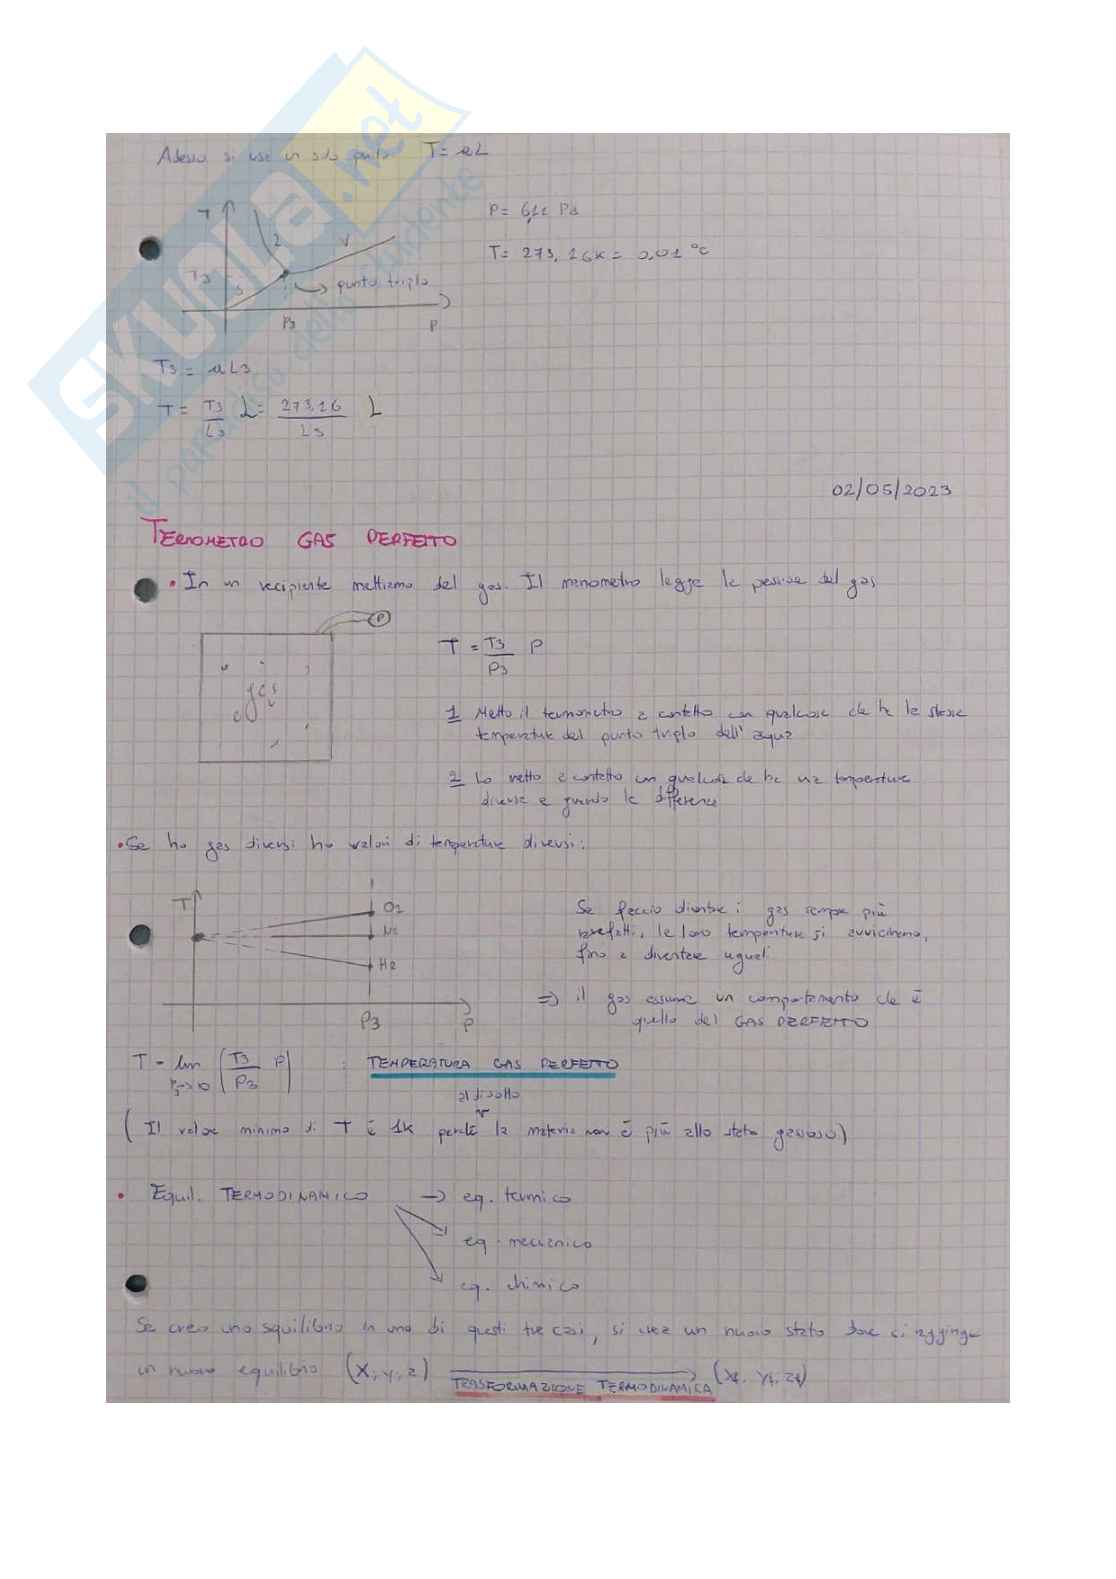 Adesso si usa un solo punto T = aL
T
P = 611 Pa
2
V
T = 273,16K = 0,01 °C
T3
S
punto triplo
P3
P
T3 = aL3
T = T3/L3 L = 273,16/L3 L
02/05/2023
TERMOMETRO GAS PERFETTO
• In un recipiente mettiamo del gas. Il manometro legge la pressione del gas
P
gas
T = T3/P3 P
1 Metto il termometro a contatto con qualcosa che ha la stessa
temperatura del punto triplo dell'acqua
2 Lo metto a contatto con qualcosa che ha una temperatura
diversa e guardo la differenza
• Se ho gas diversi ho valori di temperature diversi:
T
O2
N2
H2
P3
P
Se faccio diventare i gas sempre più
rarefatti, le loro temperature si avvicinano,
fino a diventare uguali
=> il gas assume un comportamento che è
quello del GAS PERFETTO
T = lim P3→0 (T3/P3 P) : TEMPERATURA GAS PERFETTO
al di sotto
( Il valore minimo di T è 1K perché la materia non è più allo stato gassoso)
• Equil. TERMODINAMICO → eq. termico
eq. meccanico
eq. chimico
Se creo uno squilibrio in uno di questi tre casi, si crea un nuovo stato dove si raggiunge
un nuovo equilibrio (X, y, z) → (Xf, Yf, Zf)
TRASFORMAZIONE TERMODINAMICA
SKUOLA.net
il paradiso dello studente